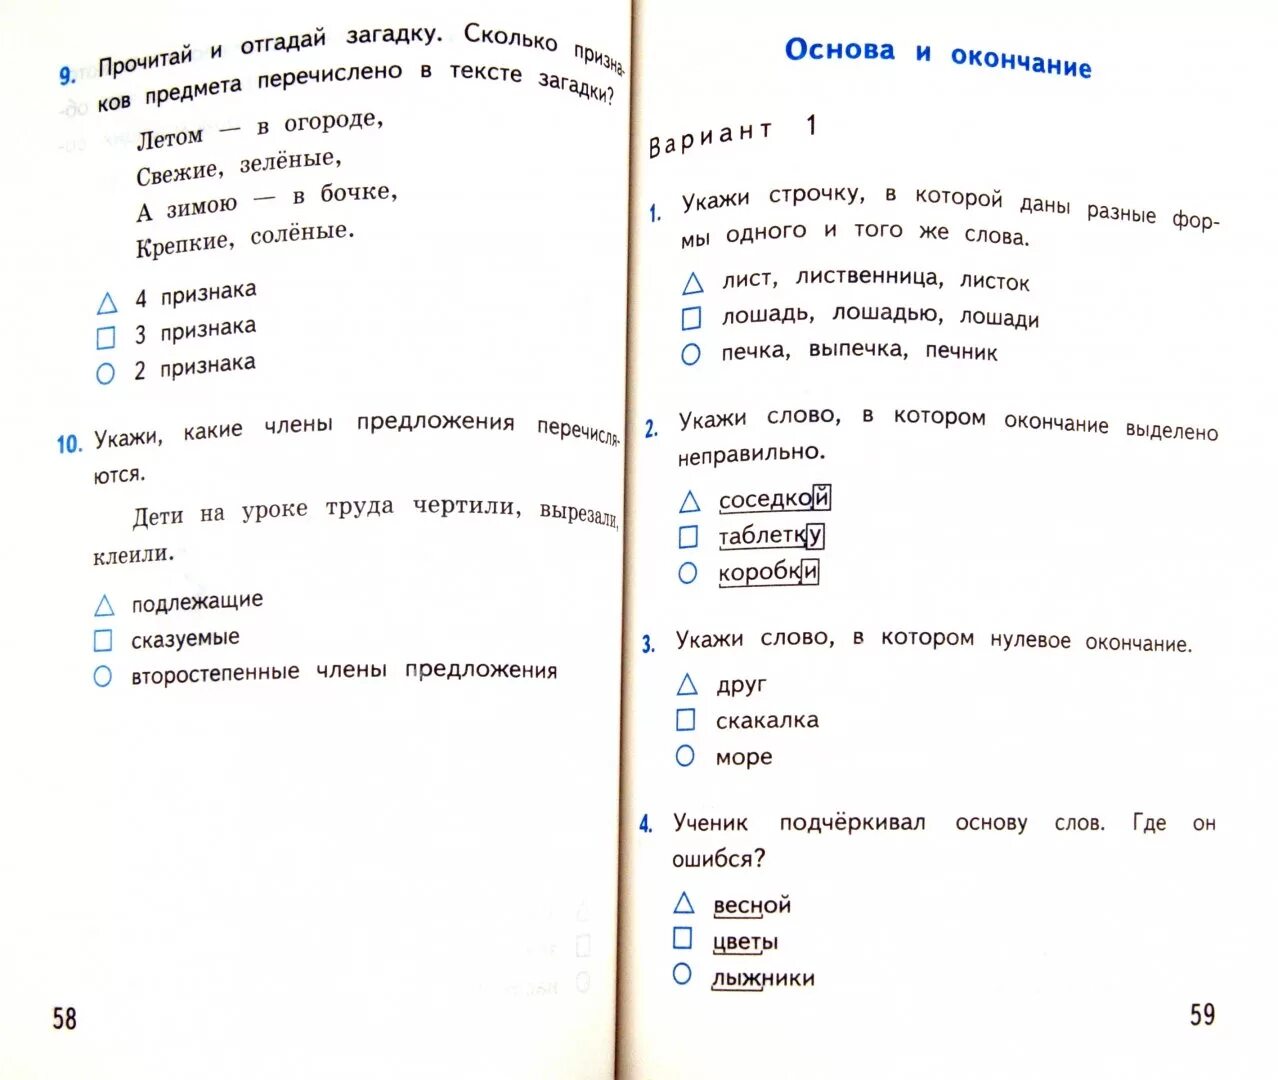 9. Прочитай и отгадай загадку. Сколько призна-
ков предмета перечислено в тексте загадки?
Летом — в огороде,
Свежие, зелёные,
А зимою — в бочке,
Крепкие, солёные.
4 признака
3 признака
2 признака
10. Укажи, какие члены предложения перечисля-
ются.
Дети на уроке труда чертили, вырезали,
клеили.
подлежащие
сказуемые
второстепенные члены предложения
58
Основа и окончание
Вариант 1
1. Укажи строчку, в которой даны разные фор-
мы одного и того же слова.
лист, лиственница, листок
лошадь, лошадью, лошади
печка, выпечка, печник
2. Укажи слово, в котором окончание выделено
неправильно.
соседкой
таблетку
коробки
3. Укажи слово, в котором нулевое окончание.
друг
скакалка
море
4. Ученик подчёркивал основу слов. Где он
ошибся?
весной
цветы
лыжники
59